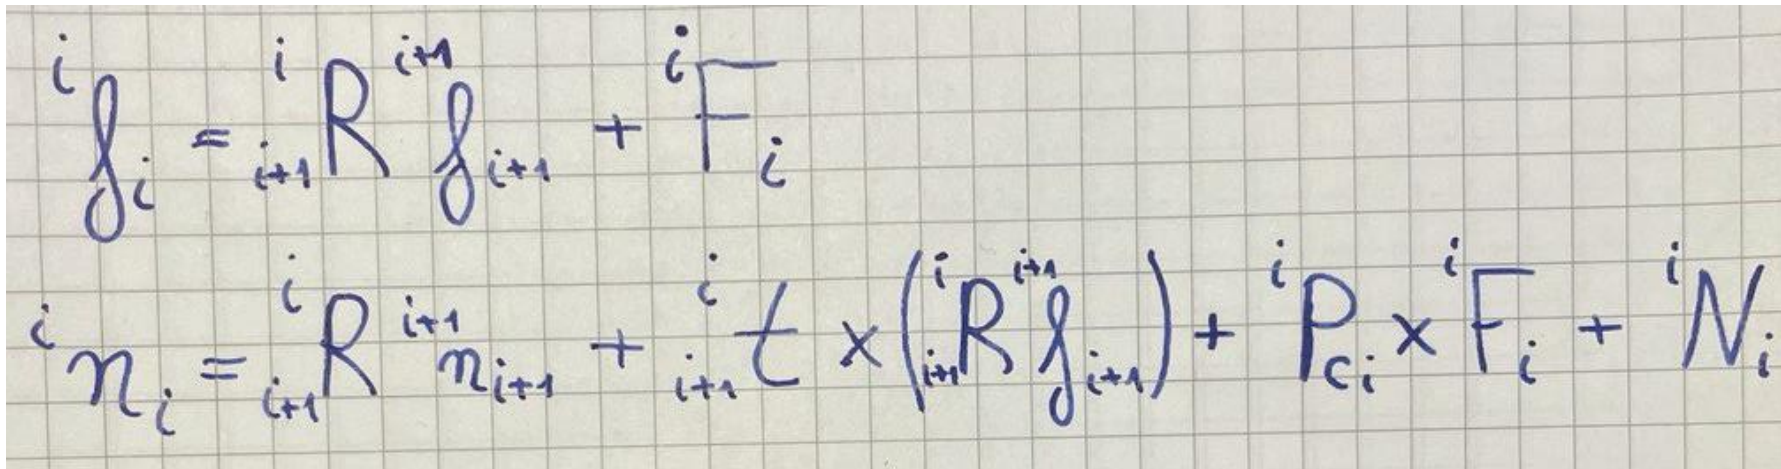 ⁱfᵢ = ⁱᵢ₊₁R ⁱ⁺¹fᵢ₊₁ + ⁱFᵢ
ⁱnᵢ = ⁱᵢ₊₁R ⁱ⁺¹nᵢ₊₁ + ⁱᵢ₊₁t × (ⁱᵢ₊₁R ⁱ⁺¹fᵢ₊₁) + ⁱP_{cᵢ} × ⁱFᵢ + ⁱNᵢ